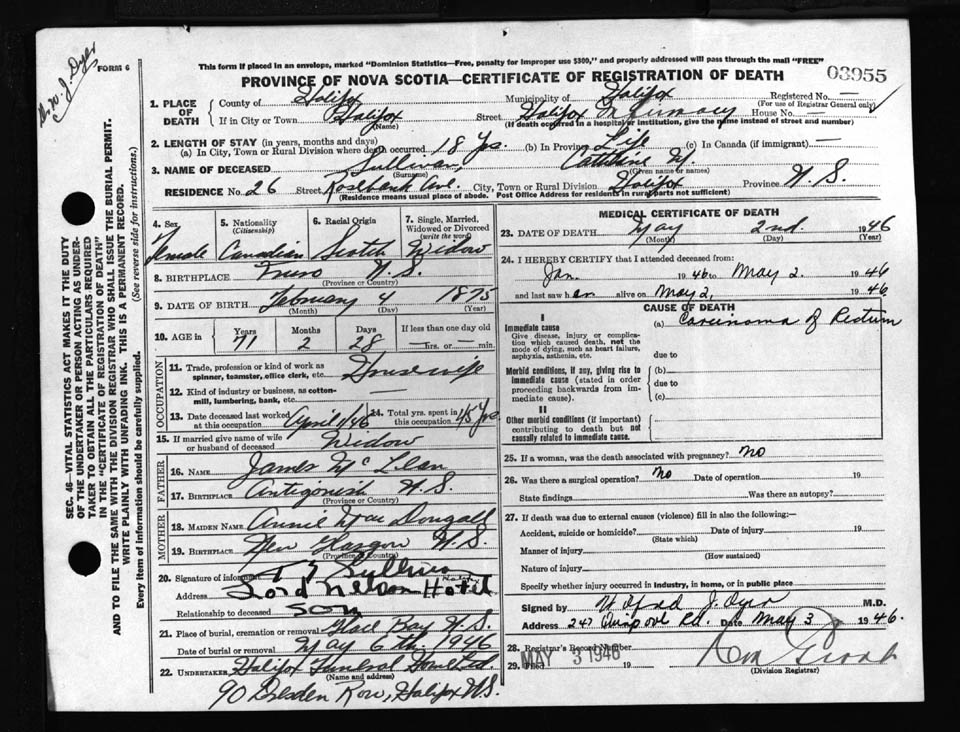 This form if placed in an envelope, marked "Dominion Statistics—Free, penalty for improper use $300," and properly addressed will pass through the mail "FREE"
FORM 6
Dr. W. J. Dyer
PROVINCE OF NOVA SCOTIA—CERTIFICATE OF REGISTRATION OF DEATH
03955
1. PLACE OF DEATH
County of Halifax Municipality of Halifax Registered No. —
(For use of Registrar General only)
If in City or Town Halifax Street Halifax Infirmary House No. —
(Name) (If death occurred in a hospital or institution, give the name instead of street and number)
2. LENGTH OF STAY (in years, months and days)
(a) In City, Town or Rural Division where death occurred 18 Yrs. (b) In Province Life (c) In Canada (if immigrant) —
3. NAME OF DECEASED Sullivan, Catherine M.
(Surname) (Given name or names)
RESIDENCE No. 26 Street Rosebank Ave. City, Town or Rural Division Halifax Province N. S.
(Residence means usual place of abode. Post Office Address for residents in rural parts not sufficient)
4. Sex Female
5. Nationality (Citizenship) Canadian
6. Racial Origin Scotch
7. Single, Married, Widowed or Divorced (write the word) Widow
8. BIRTHPLACE Truro N. S.
(Province or Country)
9. DATE OF BIRTH February 4 1875
(Month) (Day) (Year)
10. AGE in Years 71 Months 2 Days 28 If less than one day —hrs. or —min.
OCCUPATION
11. Trade, profession or kind of work as spinner, teamster, office clerk, etc. Housewife
12. Kind of industry or business, as cotton-mill, lumbering, bank, etc. —
13. Date deceased last worked at this occupation April 1/46 14. Total yrs. spent in this occupation 45 Yrs.
15. If married give name of wife or husband of deceased Widow
FATHER
16. NAME James McLean
17. BIRTHPLACE Antigonish N. S.
(Province or Country)
MOTHER
18. MAIDEN NAME Annie MacDougall
19. BIRTHPLACE New Glasgow N. S.
(Province or Country)
20. Signature of informant Sullivan
Address Lord Nelson Hotel
Relationship to deceased son
21. Place of burial, cremation or removal Glace Bay N. S.
Date of burial or removal May 6th 1946
22. UNDERTAKER Halifax Funeral Home Ltd.
(Name and address)
90 Dresden Row, Halifax N.S.
MEDICAL CERTIFICATE OF DEATH
23. DATE OF DEATH May 2nd. 1946
(Month) (Day) (Year)
24. I HEREBY CERTIFY that I attended deceased from:
Jan. 1946 to May 2. 1946
and last saw her alive on May 2, 1946.
CAUSE OF DEATH
I
Immediate cause
Give disease, injury or complication which caused death, not the mode of dying, such as heart failure, asphyxia, asthenia, etc.
(a) Carcinoma of Rectum
due to
Morbid conditions, if any, giving rise to immediate cause (stated in order proceeding backwards from immediate cause)
(b)
due to
(c)
II
Other morbid conditions (if important) contributing to death but not causally related to immediate cause.
25. If a woman, was the death associated with pregnancy? no
26. Was there a surgical operation? no Date of operation 19
State findings Was there an autopsy?
27. If death was due to external causes (violence) fill in also the following:—
Accident, suicide or homicide? Date of injury 19
(State which)
Manner of injury
(How sustained)
Nature of injury
Specify whether injury occurred in industry, in home, or in public place
Signed by J. Dyer M.D.
Address 247 Quinpool Rd. Date May 3 1946.
28. Registrar's Record Number
29. Filed MAY 3 1946 19
(Division Registrar)
SEC. 46—VITAL STATISTICS ACT MAKES IT THE DUTY
OF THE UNDERTAKER OR PERSON ACTING AS UNDERTAKER TO OBTAIN ALL THE PARTICULARS REQUIRED
IN THE "CERTIFICATE OF REGISTRATION OF DEATH"
AND TO FILE THE SAME WITH THE DIVISION REGISTRAR WHO SHALL ISSUE THE BURIAL PERMIT.
WRITE PLAINLY WITH UNFADING INK. THIS IS A PERMANENT RECORD.
Every item of information should be carefully supplied. (See reverse side for instructions.)